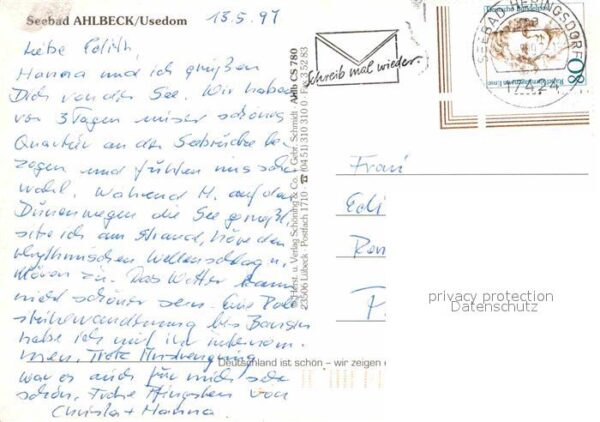 Seebad AHLBECK/Usedom
13.5.97
Liebe Edith,
Hanna und ich grüßen
Dich von der See. Wir haben
vor 3 Tagen unser schönes
Quartier an der Seebrücke be-
zogen und fühlen uns sehr
wohl. Während H. auf den
Dünenwegen die See genießt,
sitze ich am Strand, höre den
rhythmischen Wellenschlag u.
Möven zu. Das Wetter kann
nicht schöner sein. Eine Roll
stuhlwanderung bis Bansin
habe ich mit ihr unternom-
men. Trotz Anstrengung
war es auch für mich sehr
schön. Frohe Pfingsten von
Christa + Hanna
© Herst. u. Verlag Schöning & Co. + Gebr. Schmidt
23506 Lübeck Postfach 1710 ☎ (0451) 310 310 0
Ahlb CS 780
Schreib mal wieder.
SEEBAD HERINGSDORF
17424
80
Frau
Edi
Deutschland ist schön – wir zeigen
privacy protection
Datenschutz